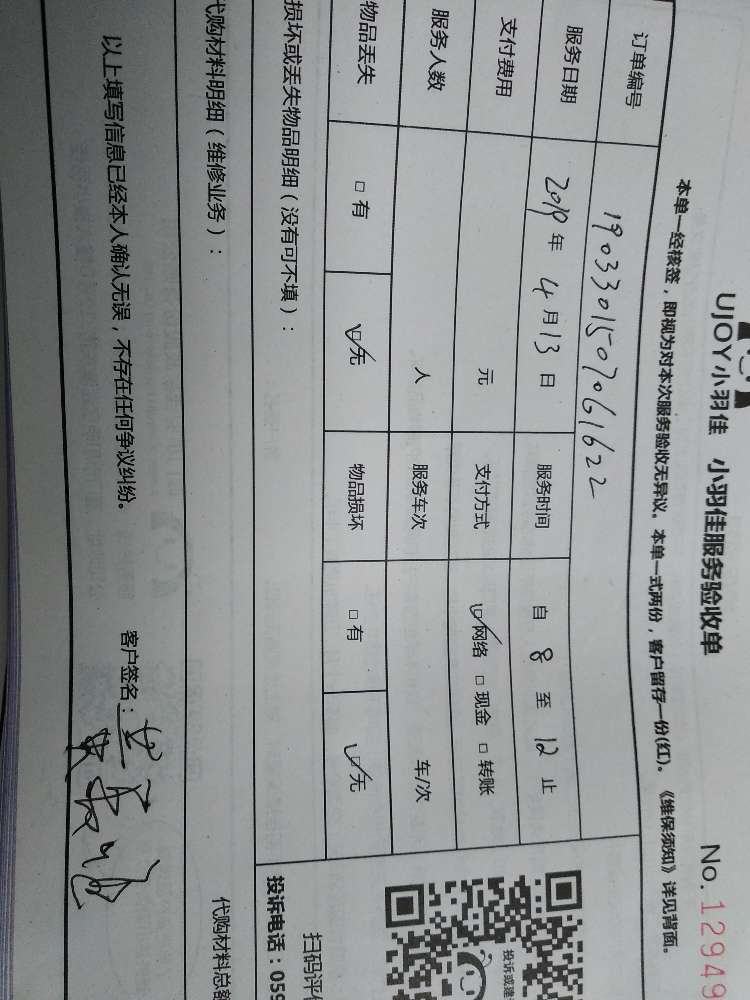 UJOY小羽佳 小羽佳服务验收单
No. 12949
本单一经核签，即视为对本次服务验收无异议。本单一式两份，客户留存一份(红)。《维保须知》详见背面。
订单编号 1903301507061622
服务日期 2019年 4月13日 服务时间 自 8 至 12 止
支付费用 元 支付方式 ☑网络 □现金 □转账
服务人数 人 服务车次 车/次
物品丢失 □有 ☑无 物品损坏 □有 ☑无
损坏或丢失物品明细（没有可不填）：
投诉或建
扫码评价
投诉电话：059
代购材料明细（维修业务）：
代购材料总额
以上填写信息已经本人确认无误，不存在任何争议纠纷。 客户签名：